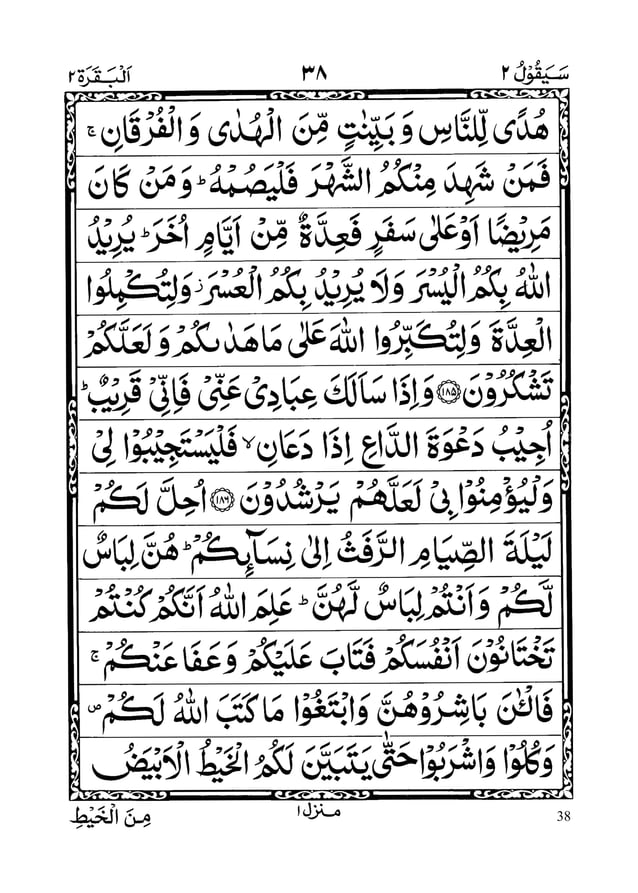 سَيَقُوْلُ ٢ ٣٨ اَلْبَقَرَة ٢
هُدًى لِّلنَّاسِ وَ بَيِّنٰتٍ مِّنَ الْهُدٰى وَ الْفُرْقَانِ ۚ
فَمَنْ شَهِدَ مِنْكُمُ الشَّهْرَ فَلْيَصُمْهُ ؕ وَ مَنْ كَانَ
مَرِيْضًا اَوْ عَلٰى سَفَرٍ فَعِدَّةٌ مِّنْ اَيَّامٍ اُخَرَ ؕ يُرِيْدُ
اللّٰهُ بِكُمُ الْيُسْرَ وَ لَا يُرِيْدُ بِكُمُ الْعُسْرَ ز وَ لِتُكْمِلُوا
الْعِدَّةَ وَ لِتُكَبِّرُوا اللّٰهَ عَلٰى مَا هَدٰىكُمْ وَ لَعَلَّكُمْ
تَشْكُرُوْنَ ﴿۱۸۵﴾ وَ اِذَا سَاَلَكَ عِبَادِيْ عَنِّيْ فَاِنِّيْ قَرِيْبٌ ؕ
اُجِيْبُ دَعْوَةَ الدَّاعِ اِذَا دَعَانِ ۙ فَلْيَسْتَجِيْبُوْا لِيْ
وَلْيُؤْمِنُوْا بِيْ لَعَلَّهُمْ يَرْشُدُوْنَ ﴿۱۸۶﴾ اُحِلَّ لَكُمْ
لَيْلَةَ الصِّيَامِ الرَّفَثُ اِلٰى نِسَآئِكُمْ ؕ هُنَّ لِبَاسٌ
لَّكُمْ وَ اَنْتُمْ لِبَاسٌ لَّهُنَّ ؕ عَلِمَ اللّٰهُ اَنَّكُمْ كُنْتُمْ
تَخْتَانُوْنَ اَنْفُسَكُمْ فَتَابَ عَلَيْكُمْ وَ عَفَا عَنْكُمْ ۚ
فَالْـٰٔنَ بَاشِرُوْهُنَّ وَ ابْتَغُوْا مَا كَتَبَ اللّٰهُ لَكُمْ ص
وَ كُلُوْا وَ اشْرَبُوْا حَتّٰى يَتَبَيَّنَ لَكُمُ الْخَيْطُ الْاَبْيَضُ
38 منزل ١ مِنَ الْخَيْطِ